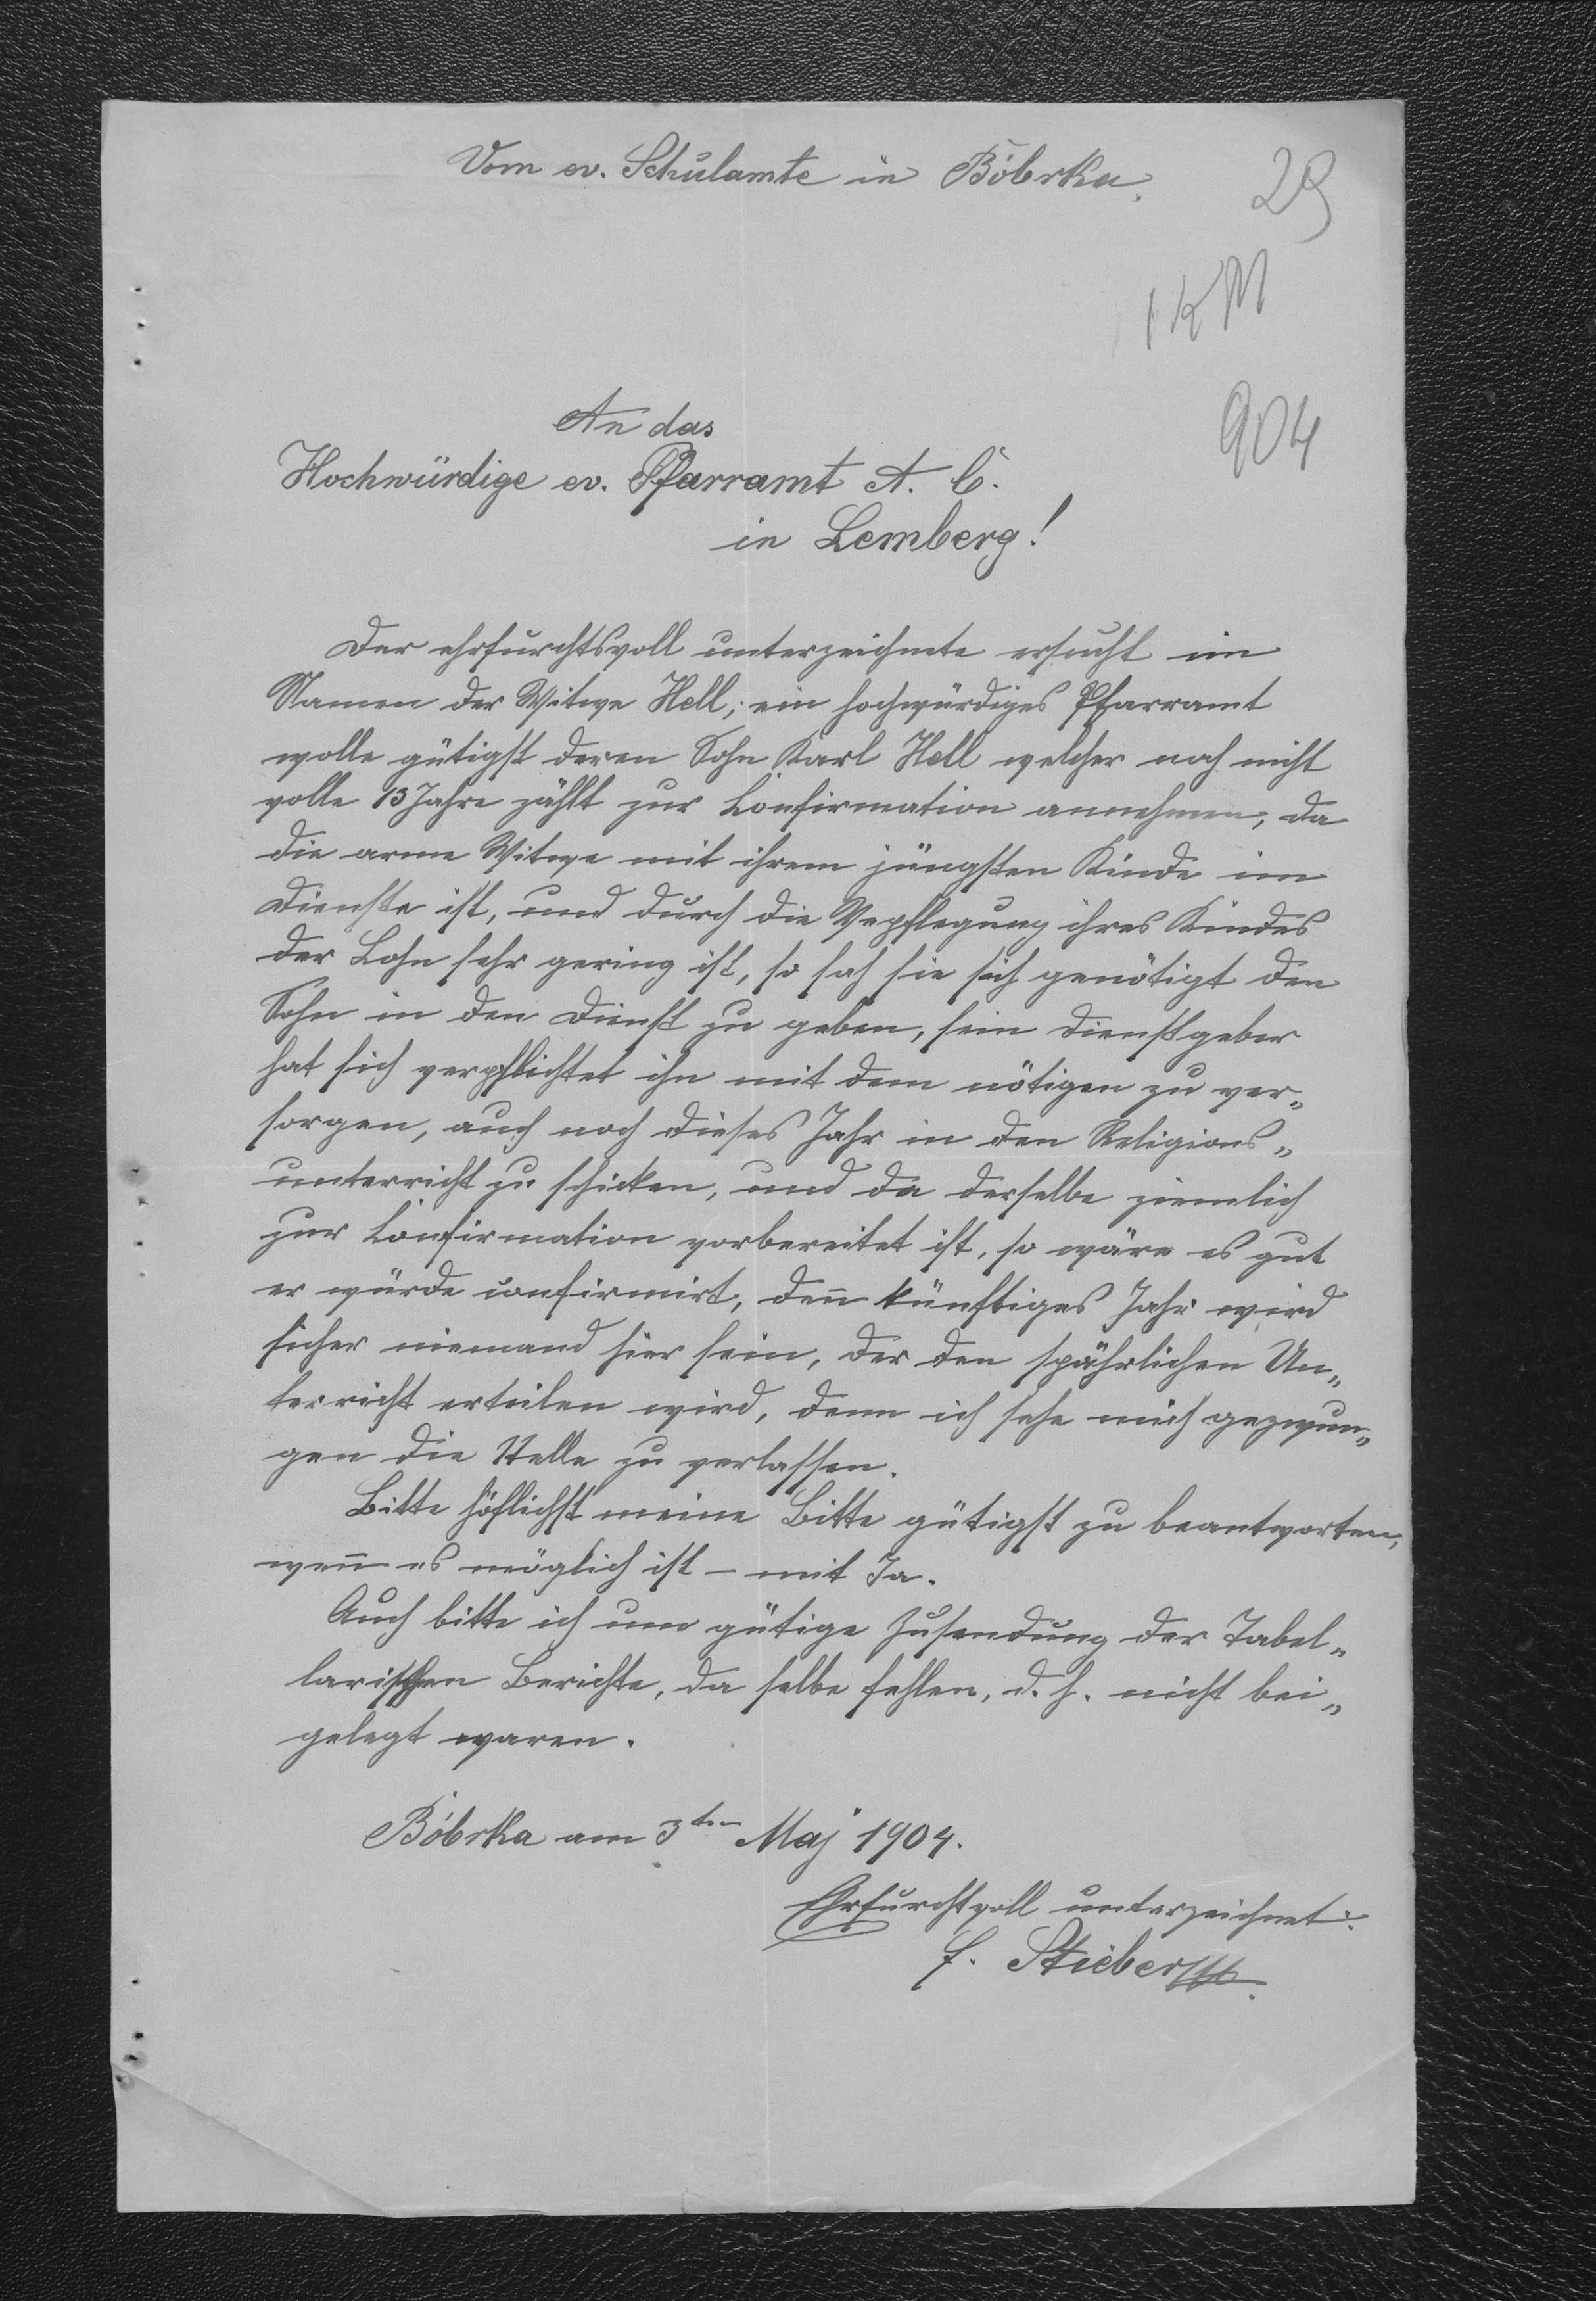 Vom ev. Schulamte in Bóbrka.
29
1 K M
904
An das
Hochwürdige ev. Pfarramt A. C.
in Lemberg!
Der ehrfurchtsvoll unterzeichnete ersucht im
Namen der Witwe Hell, ein hochwürdiges Pfarramt
wolle gütigst deren Sohn Karl Hell welcher noch nicht
volle 13 Jahre zählt zur Confirmation annehmen, da
die arme Witwe mit ihrem jüngsten Kinde im
Dienste ist, und durch die Vepflegung ihres Kindes
der Lohn sehr gering ist, so sah sie sich genötigt den
Sohn in den Dienst zu geben, sein Dienstgeber
hat sich verpflichtet ihn mit dem nötigen zu ver„
sorgen, auch noch dieses Jahr in den Religions„
unterricht zu schicken, und da derselbe ziemlich
zur Confirmation vorbereitet ist, so wäre es gut
er würde confirmirt, den̄ künftiges Jahr wird
sicher niemand hier sein, der den spährlichen Un„
terricht erteilen wird, denn ich sehe mich gezwun„
gen die Stelle zu verlassen.
Bitte höflichst meine Bitte gütigst zu beantworten,
wen̄ es möglich ist – mit Ja.
Auch bitte ich um gütige Zusendung der Tabel„
larischen Berichte, da selbe fehlen, d. h. nicht bei„
gelegt waren.
Bóbrka am 3ten Maj 1904.
Ehrfurchtvoll unterzeichnet:
f. Stieber